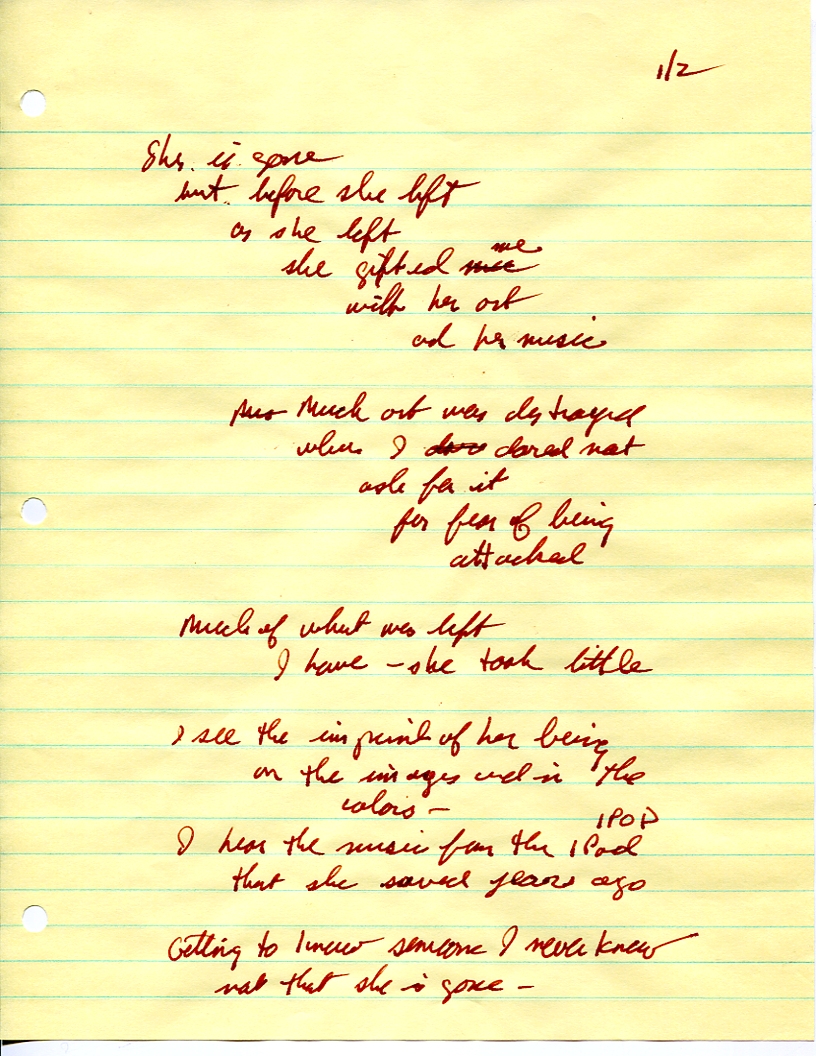 1/2
She is gone
but before she left
as she left
me
she gifted
with her art
and her music
Much art was destroyed
when I dared not
ask for it
for fear of being
attacked
Much of what was left
I have – she took little
I see the imprint of her being
on the images and in the
colors –
IPOD
I hear the music from the IPod
that she saved years ago
Getting to know someone I never knew
that she is gone –